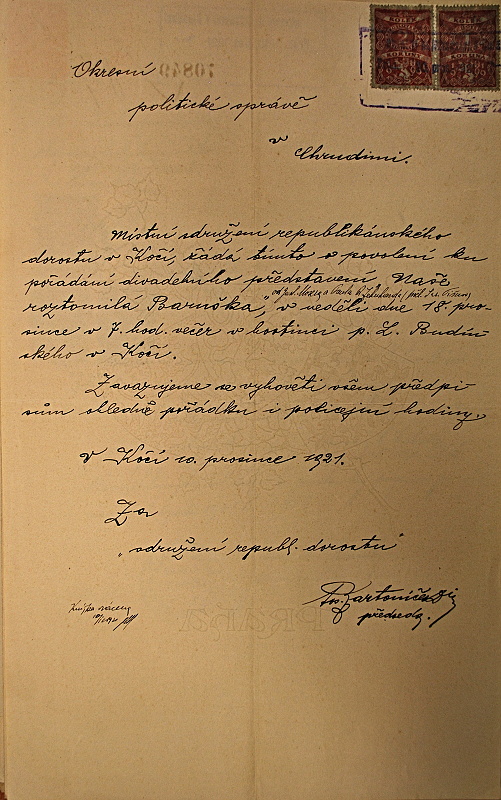 Okresní
politické správě
v
Chrudimi.
Místní sdružení republikánského
dorostu v Kočí, žádá tímto o povolení ku
pořádání divadelního představení „Naše
roztomilá Baruška", v neděli dne 18. pro-
since v 7. hod. večer v hostinci p. L. Budín-
ského v Kočí.
Zavazujeme se vyhověti všem předpi-
sům ohledně pořádku i policejní hodiny.
V Kočí 10. prosince 1921.
Za
„sdružení republ. dorostu"
Jos. Bartoníček
předseda.